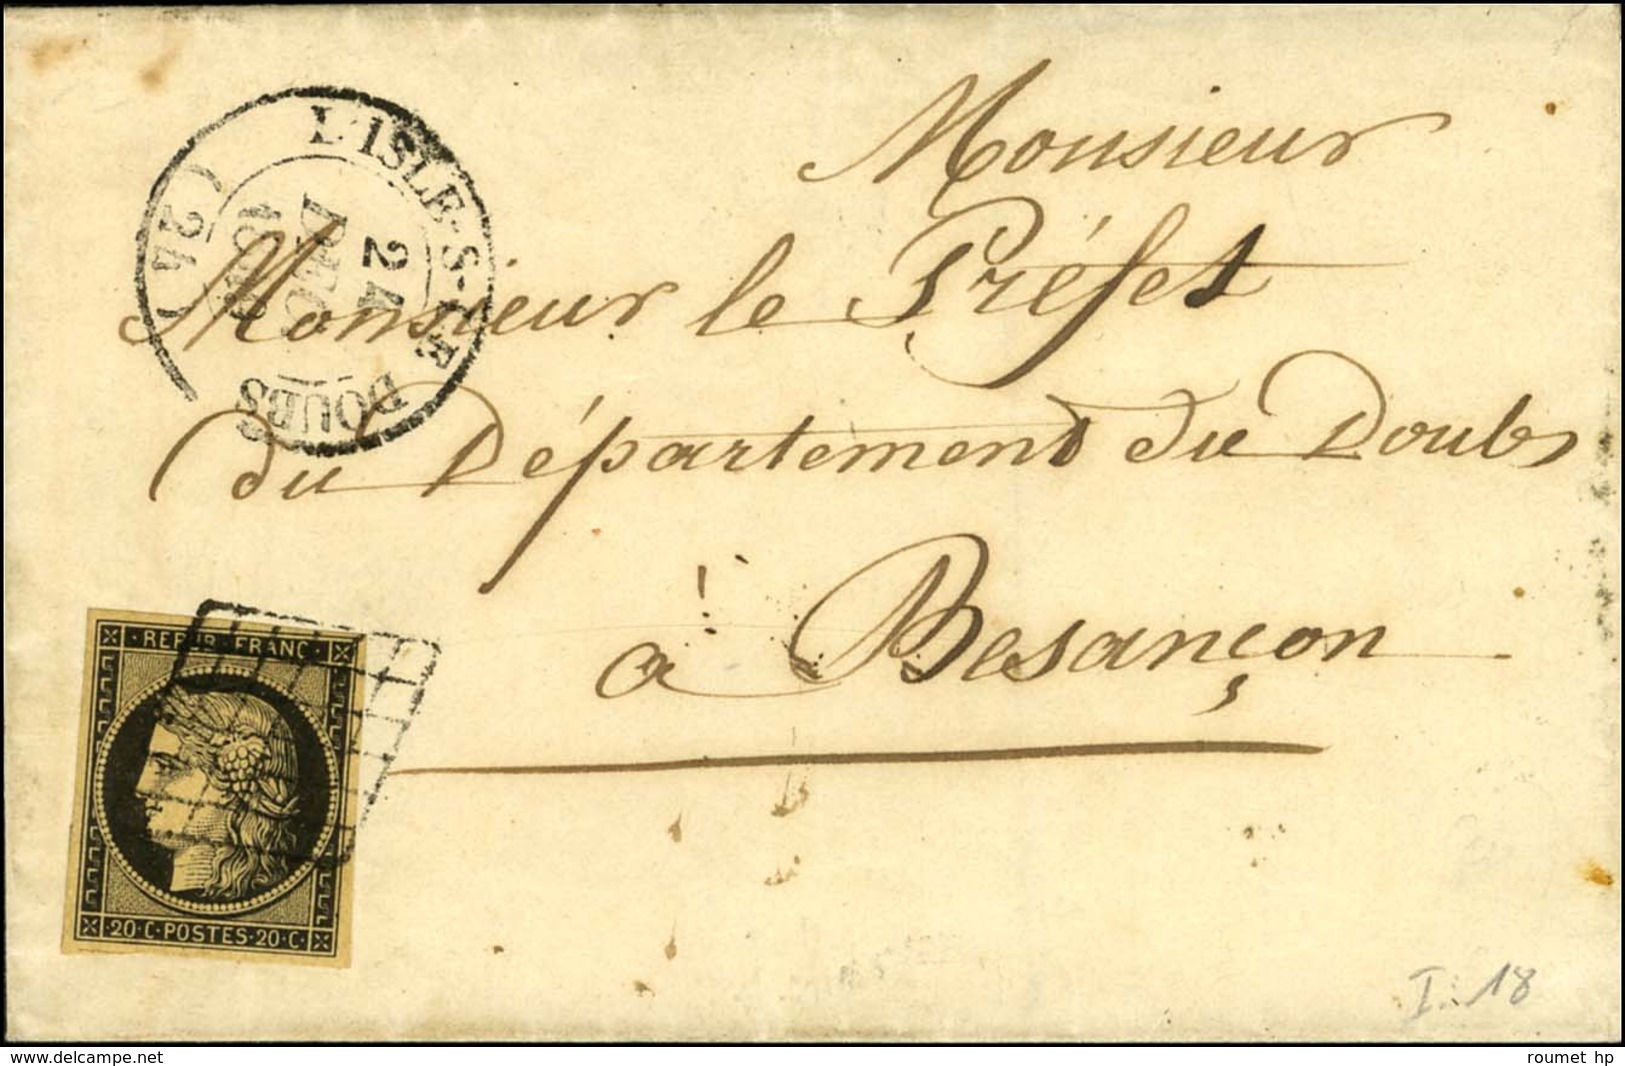 L'ISLE-S-LE DOUBS
24
DEC
(24)
Monsieur
Monsieur le Préfet
du Département du Doubs
à Besançon
REPUB·FRANC·
·20·C·POSTES·20·C·
I. 18
www.delcampe.net
roumet hp